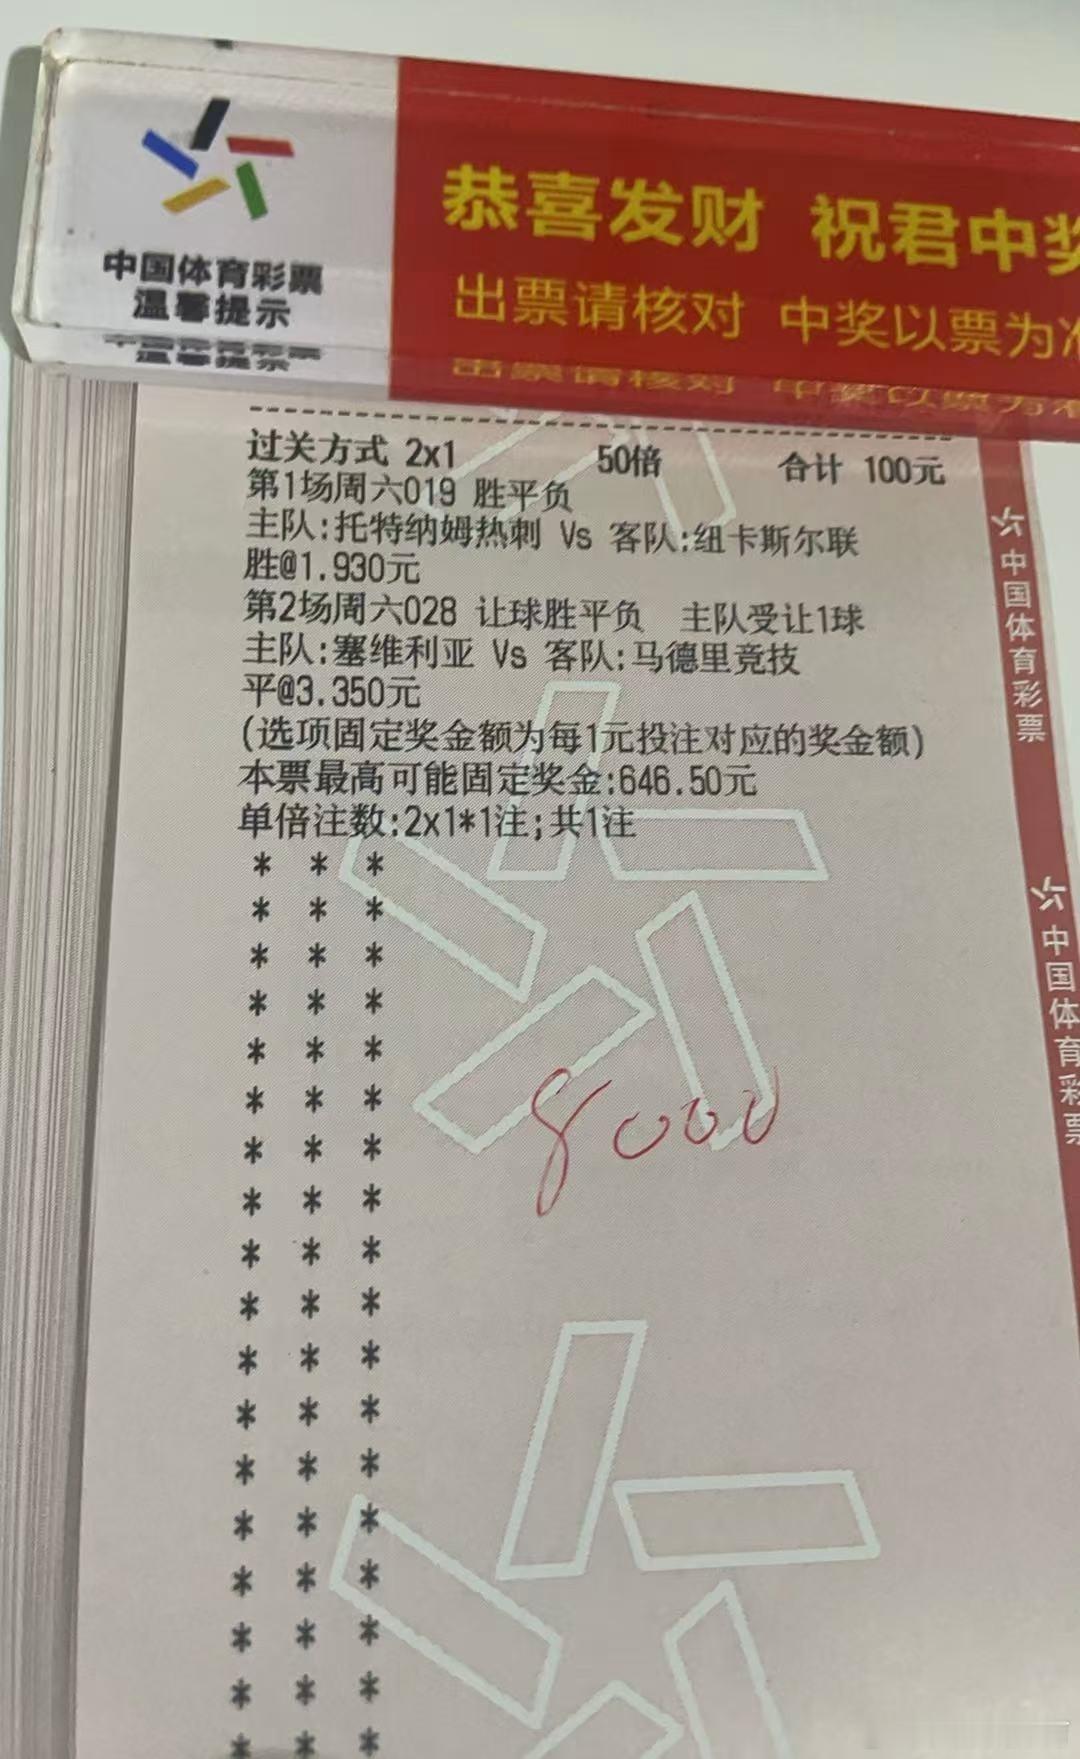 中国体育彩票
温馨提示
恭喜发财 祝君中奖
出票请核对 中奖以票为准
过关方式 2x1 50倍 合计 100元
第1场周六019 胜平负
主队:托特纳姆热刺 Vs 客队:纽卡斯尔联
胜@1.930元
第2场周六028 让球胜平负 主队受让1球
主队:塞维利亚 Vs 客队:马德里竞技
平@3.350元
(选项固定奖金额为每1元投注对应的奖金额)
本票最高可能固定奖金:646.50元
单倍注数:2x1*1注;共1注
* * *
* * *
* * *
* * *
* * *
* * *
* * *
* * *
* * *
* * *
* * *
* * *
* * *
* * *
* * *
* * *
* * *
* * *
8000
中国体育彩票
中国体育彩票